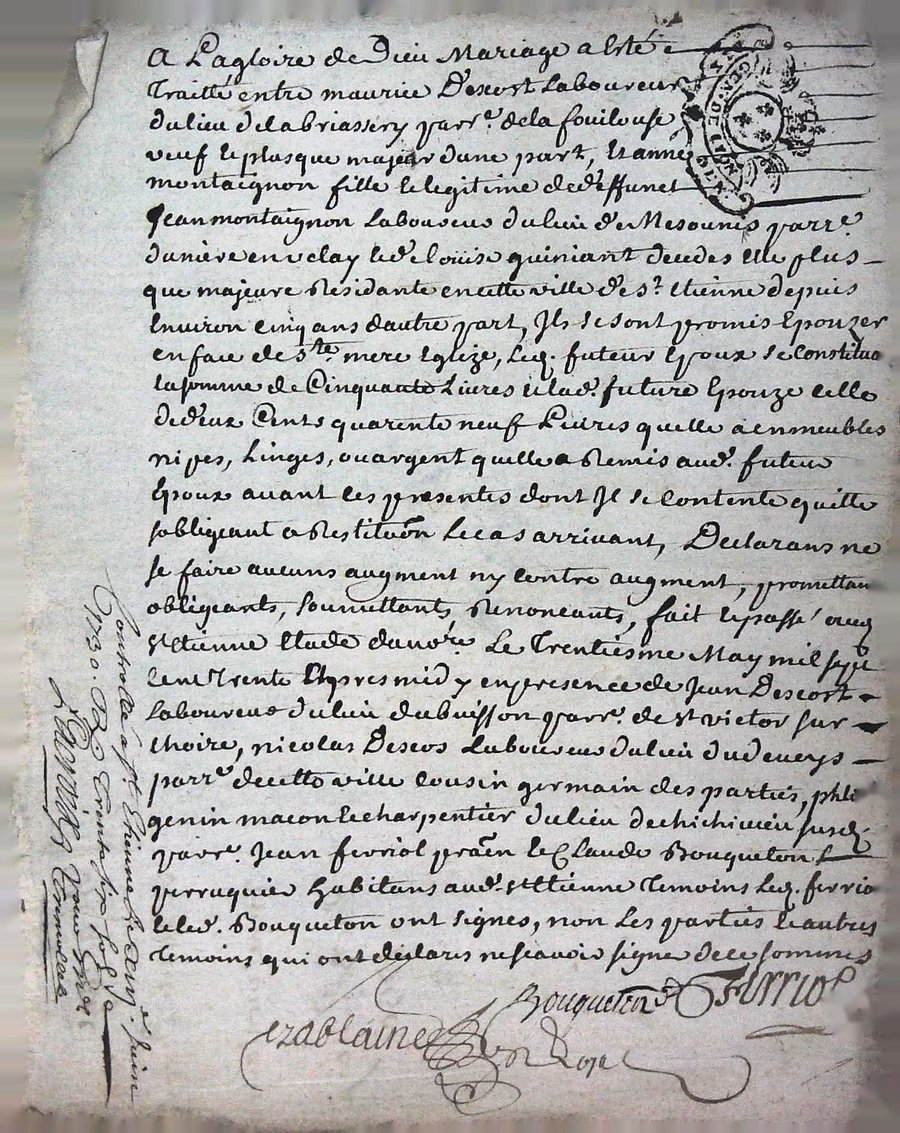 A Lagloire de Dieu Mariage a Esté
Traitté entre maurice Descort Laboureur
du lieu delabriassery parr.e de la fouilouse
veuf et plusque majeur dune part, Et anne
montaignon fille Et legitime de deffunet
Jean montaignon Laboureur du lieu de parr.e
duniére en velay et de Louise deuedes Elle plus
que majeure Residante en cette ville de s.t Etienne depuis
Environ cinq ans dautre part, Ils se sont promis Epouzer
en face de s.te mere Eglize, Leq. futeur Epoux se Constitue
la somme de Cinquante Livres et lad. future Epouze celle
de deux Cents quarente neuf Livres quelle a en meubles
nipes, Linges, ou argent quelle a Remis aud. futeur
Epoux avant les presentes dont Il se contente quitte
sobligeant a Restituon Le cas arrivant, Declarans ne
se faire aucuns augment ny contre augment, promettan
obligeants, soumettants, Renonceants, fait et passé
st Etienne Etude du no.re Le Trentiesme May mil sept
cent Trente Apres midy en presence de Jean Descort
Laboureur du lieu dubuisson parr.e de st victor sur
Lhoire, nicolas Descos Laboureur du lieu dudeveys
parr.e de cette ville Cousin germain des parties, phli
genin macon et charpentier du lieu de susd.
parr.e Jean ferriol pratn et Claude Bouqueton
perruquier habitans aud. st Etienne Temoins Leq. ferrio
et led. Bouqueton ont signés, non Les parties et autres
Temoins qui ont declarés ne scavoir signe de ce sommes
Bouqueton Ferriol
ezablaine
Controllé a st Etienne Le juin
1730. R Trente six sols